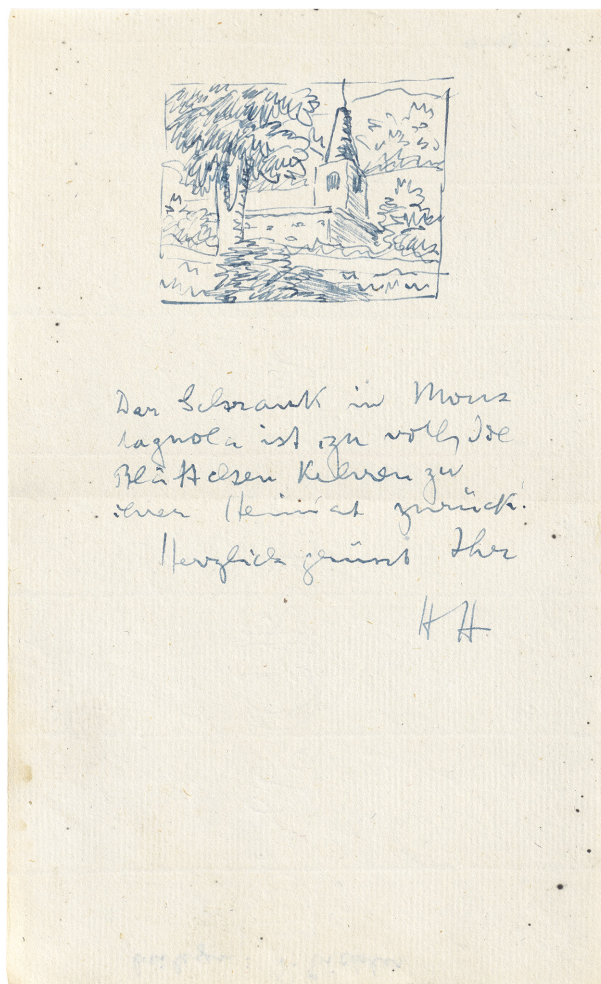 Der Schrank in Mon
tagnola ist zu voll, die
Blättchen kehren zu
ihrer Heimat zurück.
Herzlich grüsst Ihr
HH